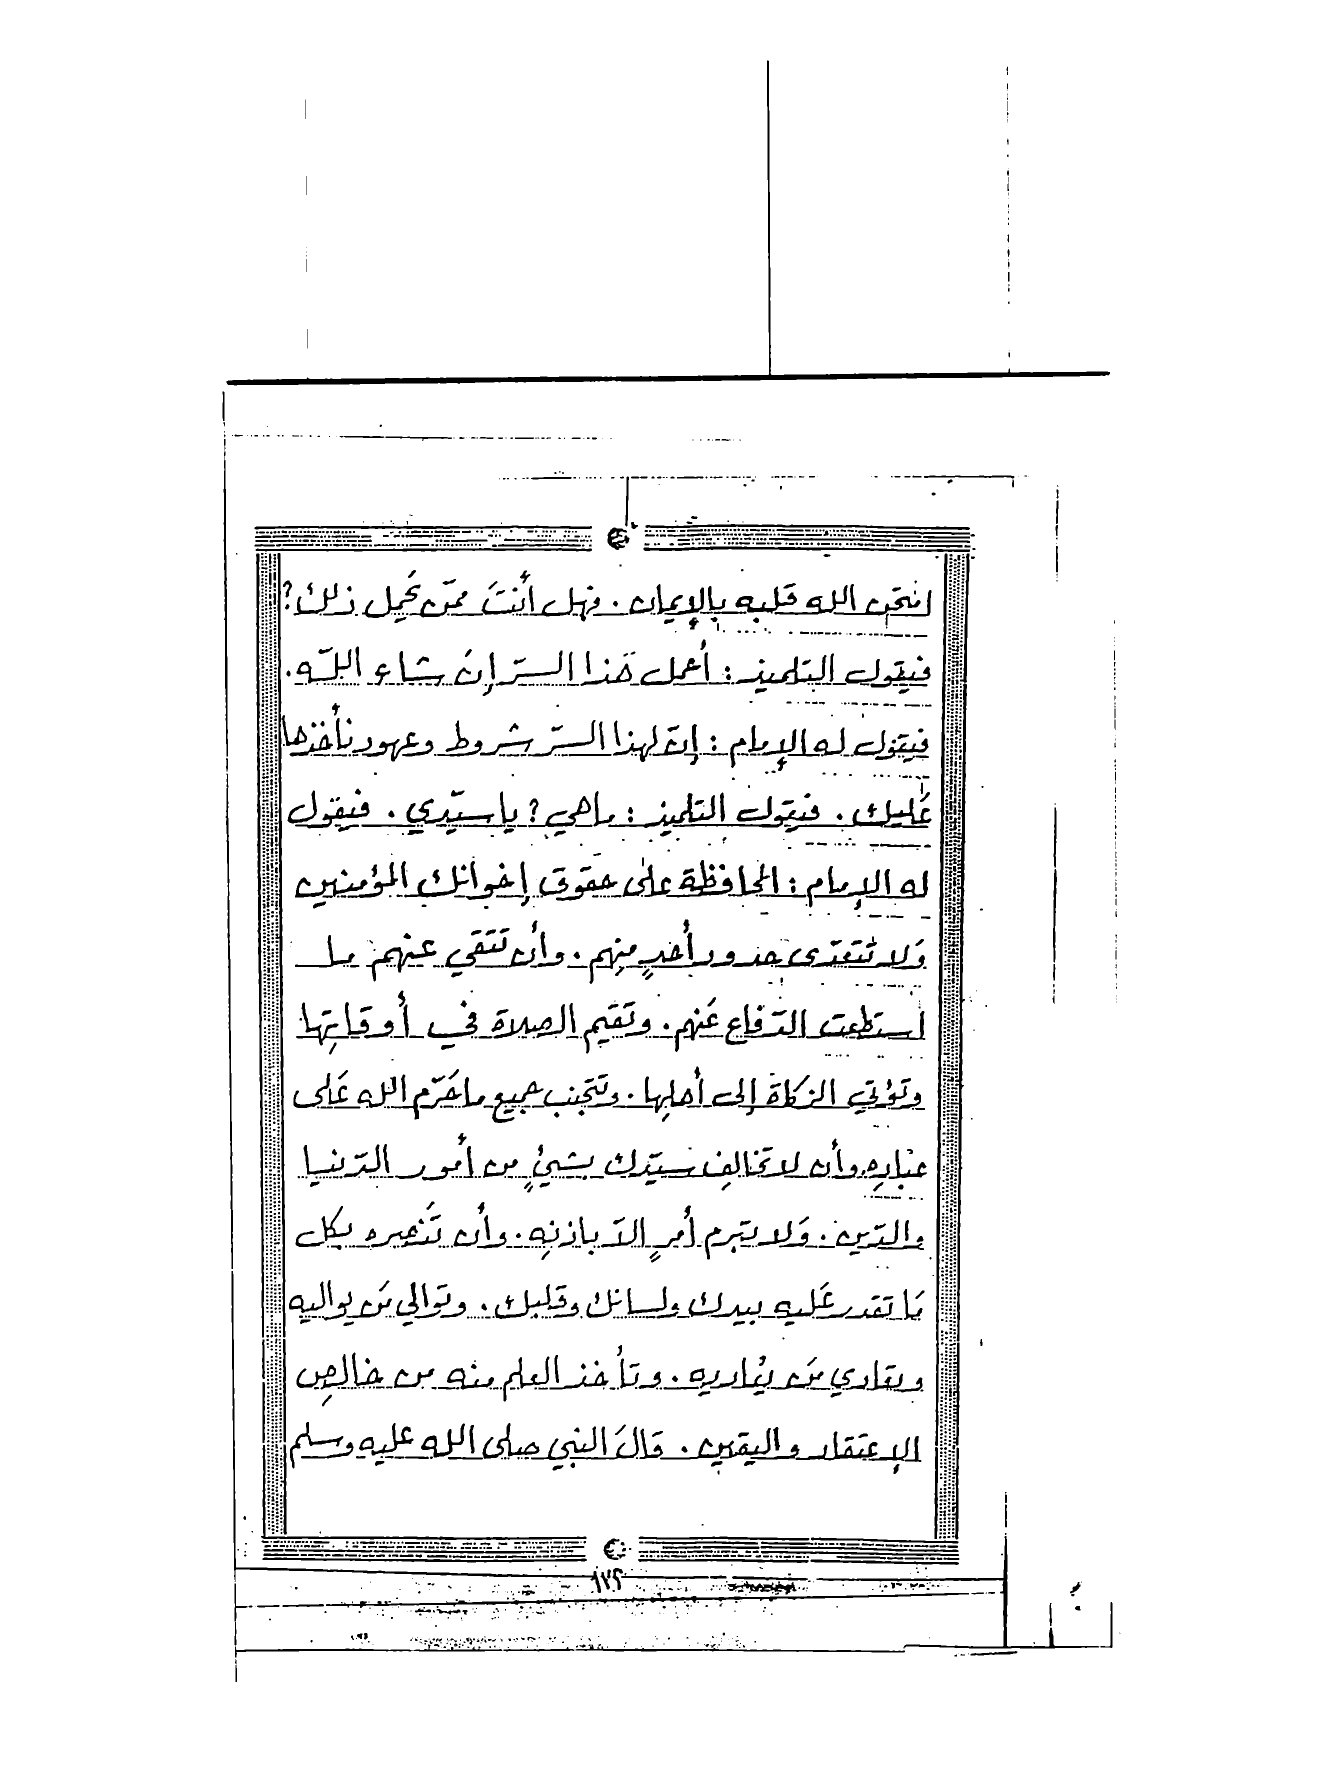 امتحن الله قلبه بالإيمان. فهل أنتَ ممّن يَحْمِل ذلك؟
فيقول التلميذ: أحمل هَذا السرّ إنْ شاء اللّه.
فيقول له الإمام: إنّ لهذا السرّ شروط وعهود نأخذها
عَليك. فيقول التلميذ: ما هي؟ يا سيّدي. فيقول
له الإمام: المحافظة على حقوق إخوانك المؤمنين
وَلا تتعدّى حدود أحدٍ مِنهم. وأن تَتَقي عنهم ما
استطعت الدّفاع عَنهم. وتقيم الصلاة في أوقاتِها
وتؤتي الزكاة إلى أهلِها. وتتجنب جميع ما حَرّم الله عَلى
عبادِهِ. وأن لا تخالِف سيّدك بشيءٍ من أمور الدّنيا
والدّين. وَلا تبرم أمرٍ الاّ باذنِهِ. وأن تَنْصره بكل
مَا تقدر عَليه بيدك ولسانك وقلبك. وتوالي مَن يواليه
وتعادي مَن يُعاديه. وتأخذ العلم منه من خالِصِ
الإعتقاد واليقين. قالَ النبي صلى الله عليه وسلم
١٧٢